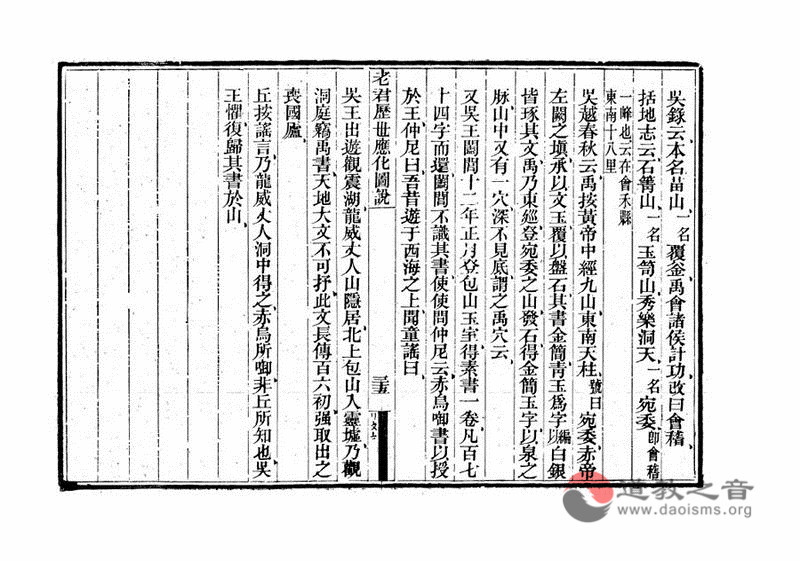 吳錄云本名苗山一名覆釜禹會諸侯計功改曰會稽
括地志云石箐山一名玉笥山秀樂洞天一名宛委即會稽
一峰也云在會禾縣
東南十八里
吳越春秋云禹按黃帝中經九山東南天柱號曰宛委赤帝
左闕之塡承以文玉覆以盤石其書金簡青玉爲字編以白銀
皆琢其文禹乃東廵登宛委之山發石得金簡玉字以泉之
脉山中又有一穴深不見底謂之禹穴云
又吳王闔閭十二年正月登包山玉室得素書一卷凡百七
十四字而還闔閭不識其書使使問仲尼云赤烏啣書以授
於王仲尼曰吾昔遊于西海之上聞童謠曰
老君歷世應化圖說
三五
吳王出遊觀震湖龍威丈人山隱居北上包山入靈墟乃觀
洞庭竊禹書天地大文不可抒此文長傳百六初强取出之
喪國廬
丘按謠言乃龍威丈人洞中得之赤烏所啣非丘所知也吳
王懼復歸其書於山
道教之音
www.daoisms.org